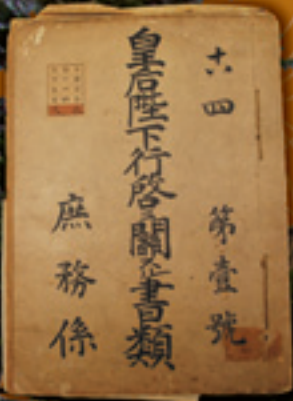 十六四
第壹號
皇后陛下行啓ニ關スル書類
庶務係